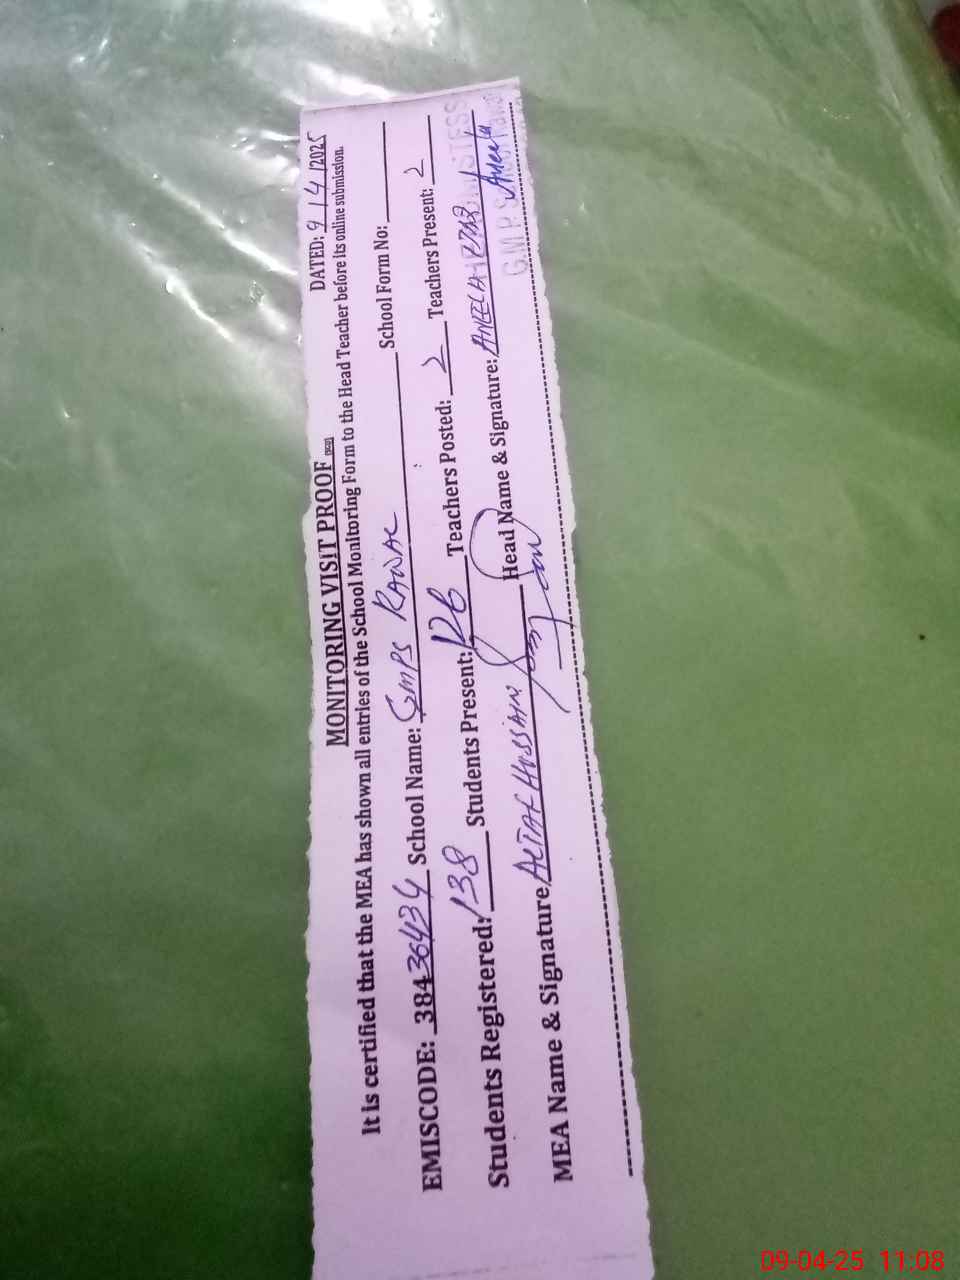 DATED: 9/4/2025
MONITORING VISIT PROOF
It is certified that the MEA has shown all entries of the School Monitoring Form to the Head Teacher before its online submission.
EMISCODE: 38436434 School Name: GMPS RAWAL School Form No:
Students Registered: 138 Students Present: 126 Teachers Posted: 2 Teachers Present: 2
MEA Name & Signature ALTAF HUSSAIN Head Name & Signature: ANEELA Aneela
G.M.P.S
09-04-25 11:08